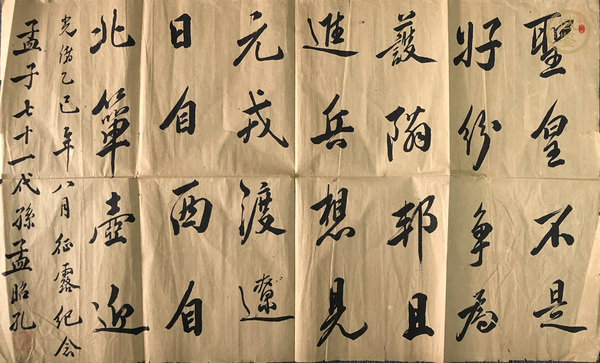 聖皇不是
好紛争為
護隣邦且
進兵想見
元戎渡遼
日自西自
北簞壺迎
光緒乙巳年八月征露紀念
孟子七十一代孫孟昭孔